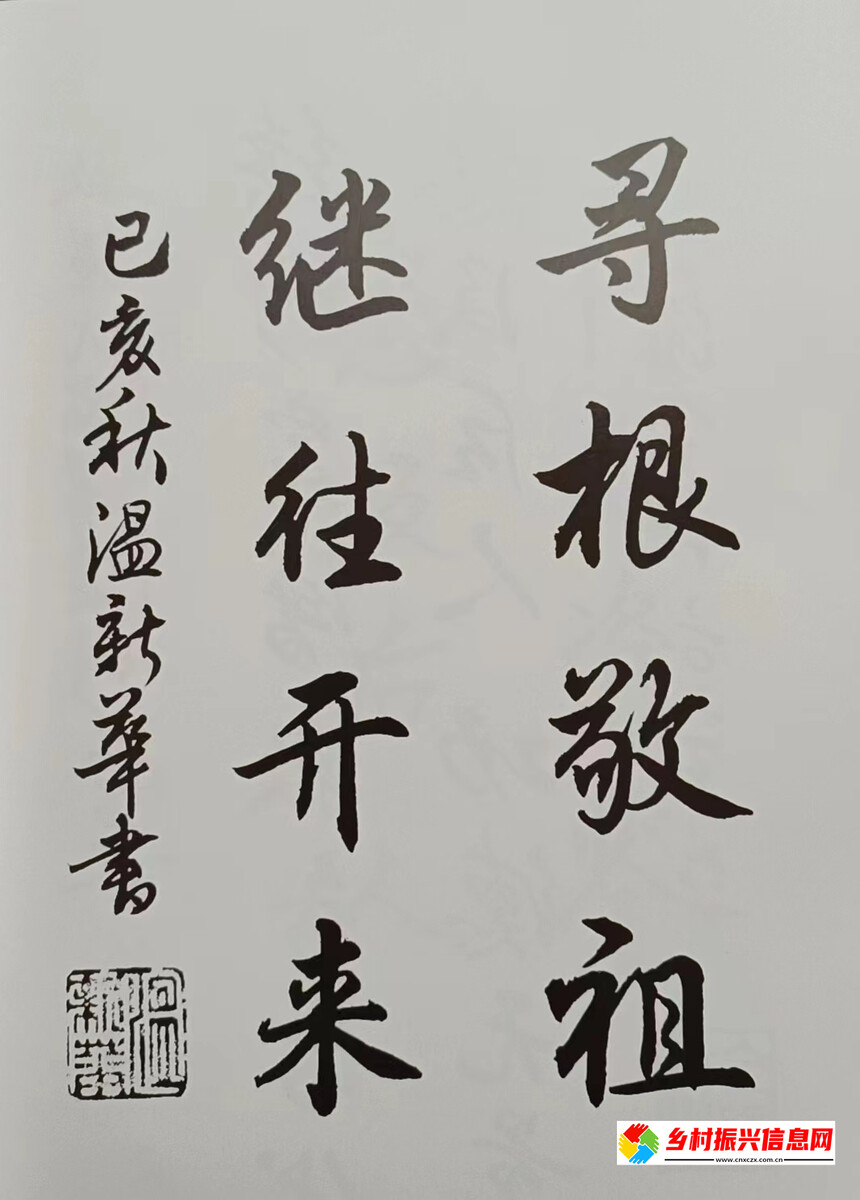 寻根敬祖
继往开来
己亥秋温新华书
乡村振兴信息网
www.cnxczx.com.cn